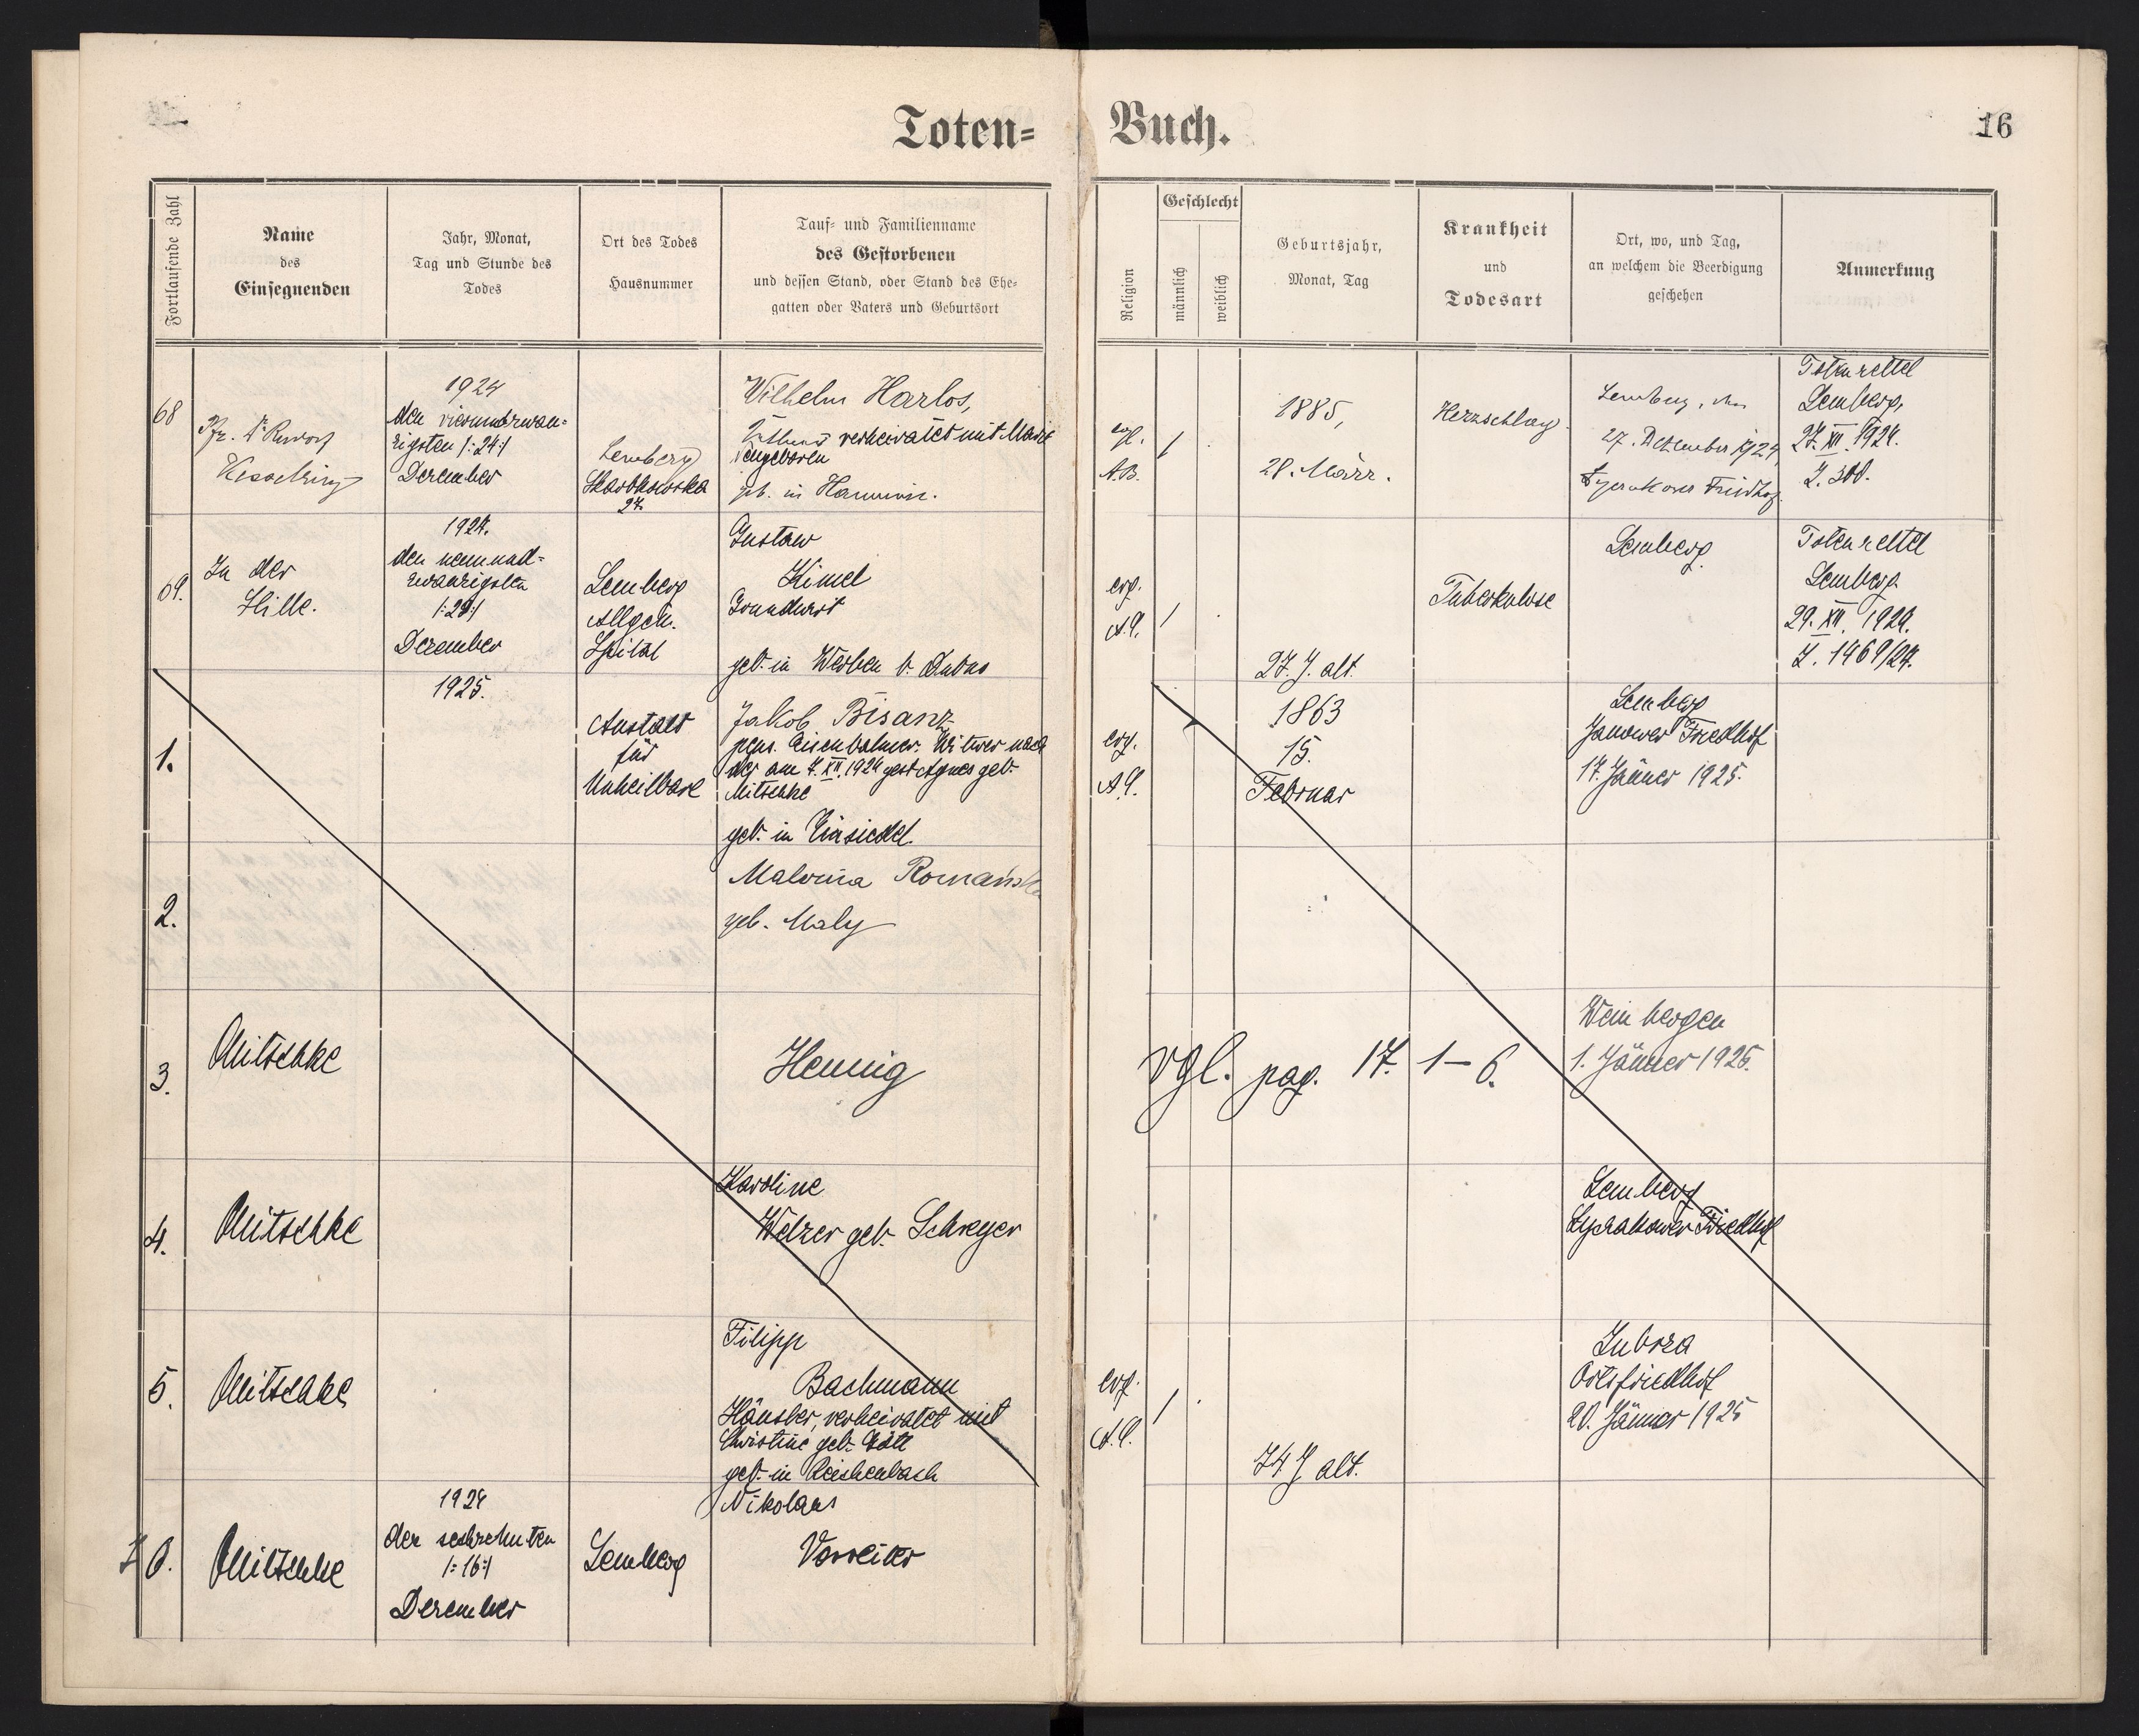 Toten=
Buch.
16
Fortlaufende Zahl
Name
des
Einsegnenden
Jahr, Monat,
Tag und Stunde des
Todes
Ort des Todes
Hausnummer
Tauf= und Familienname
des Gestorbenen
und dessen Stand, oder Stand des Ehe=
gatten oder Vaters und Geburtsort
Religion
Geschlecht
männlich
weiblich
Geburtsjahr,
Monat, Tag
Krankheit
und
Todesart
Ort, wo, und Tag,
an welchem die Beerdigung
geschehen
Anmerkung
68
Pfr. Dr
Kesselring
1924
den vierundzwan=
zigsten /:24:/
Dezember
Lemberg
27
Wilhelm Harlos,
verheiratet mit Marie
geb. in
evgl.
A.B.
/
1885,
28. März.
Herzschlag
Lemberg, den
27. Dezember 1924
Friedhof
Totenzettel
Lemberg,
27. XII. 1924.
Z. 300.
69.
In der
Hille.
1924.
den neunund=
zwanzigsten
/:29:/
Dezember
Lemberg
Allgem.
Spital
Gustaw
Kimel
Grundwirt
geb. in
evg.
A.C.
/
27. J. alt
Tuberkulose
Lemberg
Totenzettel
Lemberg
29. XII. 1924.
Z. 1469/24.
1.
1925.
Anstalt
für
Unheilbare
Jakob Bisanz
pens. Eisenbahner. Witwer nach
der am 7. XII. 1924 gest. Agnes geb.
Mitschke
geb. in Einsiedel.
evg.
A.C.
1863
15.
Februar
Lemberg
Janower Friedhof
17. Jänner 1925.
2.
Malwina Romańska
geb. Maly
3.
Mitschke
Hennig
vgl. pag. 17. 1–6.
Weinbergen
1. Jänner 1925.
4.
Mitschke
Karoline
Welzer geb. Schreyer
Lemberg
Lyczakower Friedhof
5.
Mitschke
Filipp
Bachmann
Häusler, verheiratet mit
Christine geb.
geb. in Reichenbach
evg.
A.C.
/
74 J alt.
Zubrza
Ortsfriedhof
20. Jänner 1925
6.
Mitschke
1924
den sechzehnten
/:16:/
Dezember
Lemberg
Nikolaus
Vorreiter